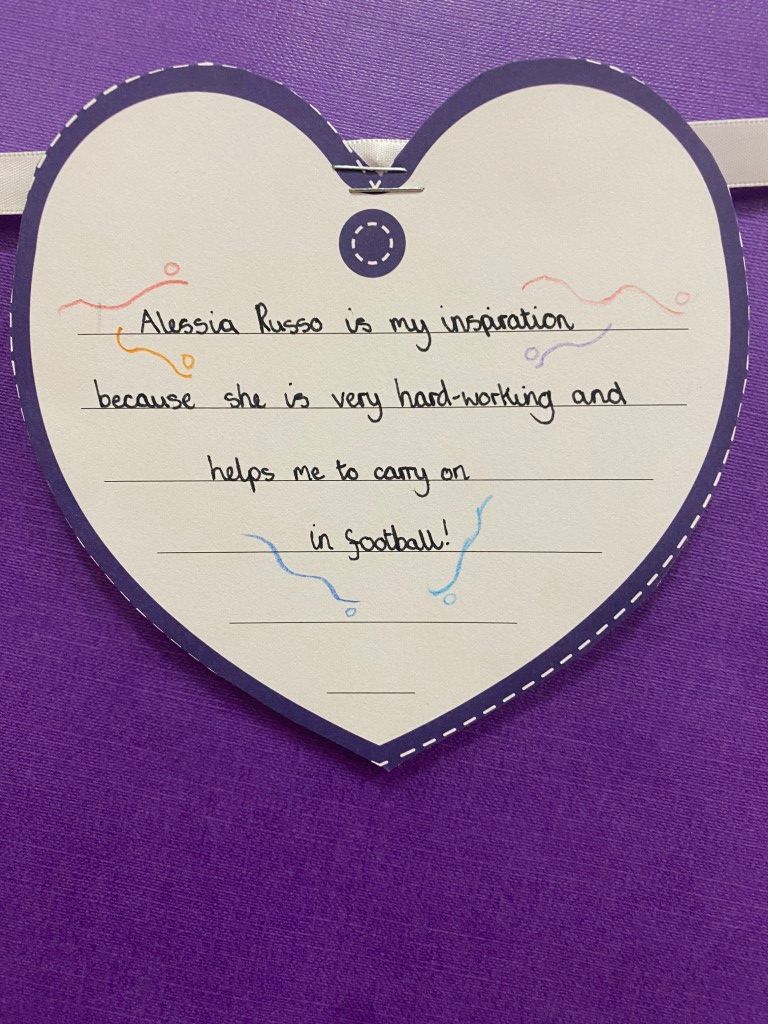 Alessia Russo is my inspiration
because she is very hard-working and
helps me to carry on
in football!